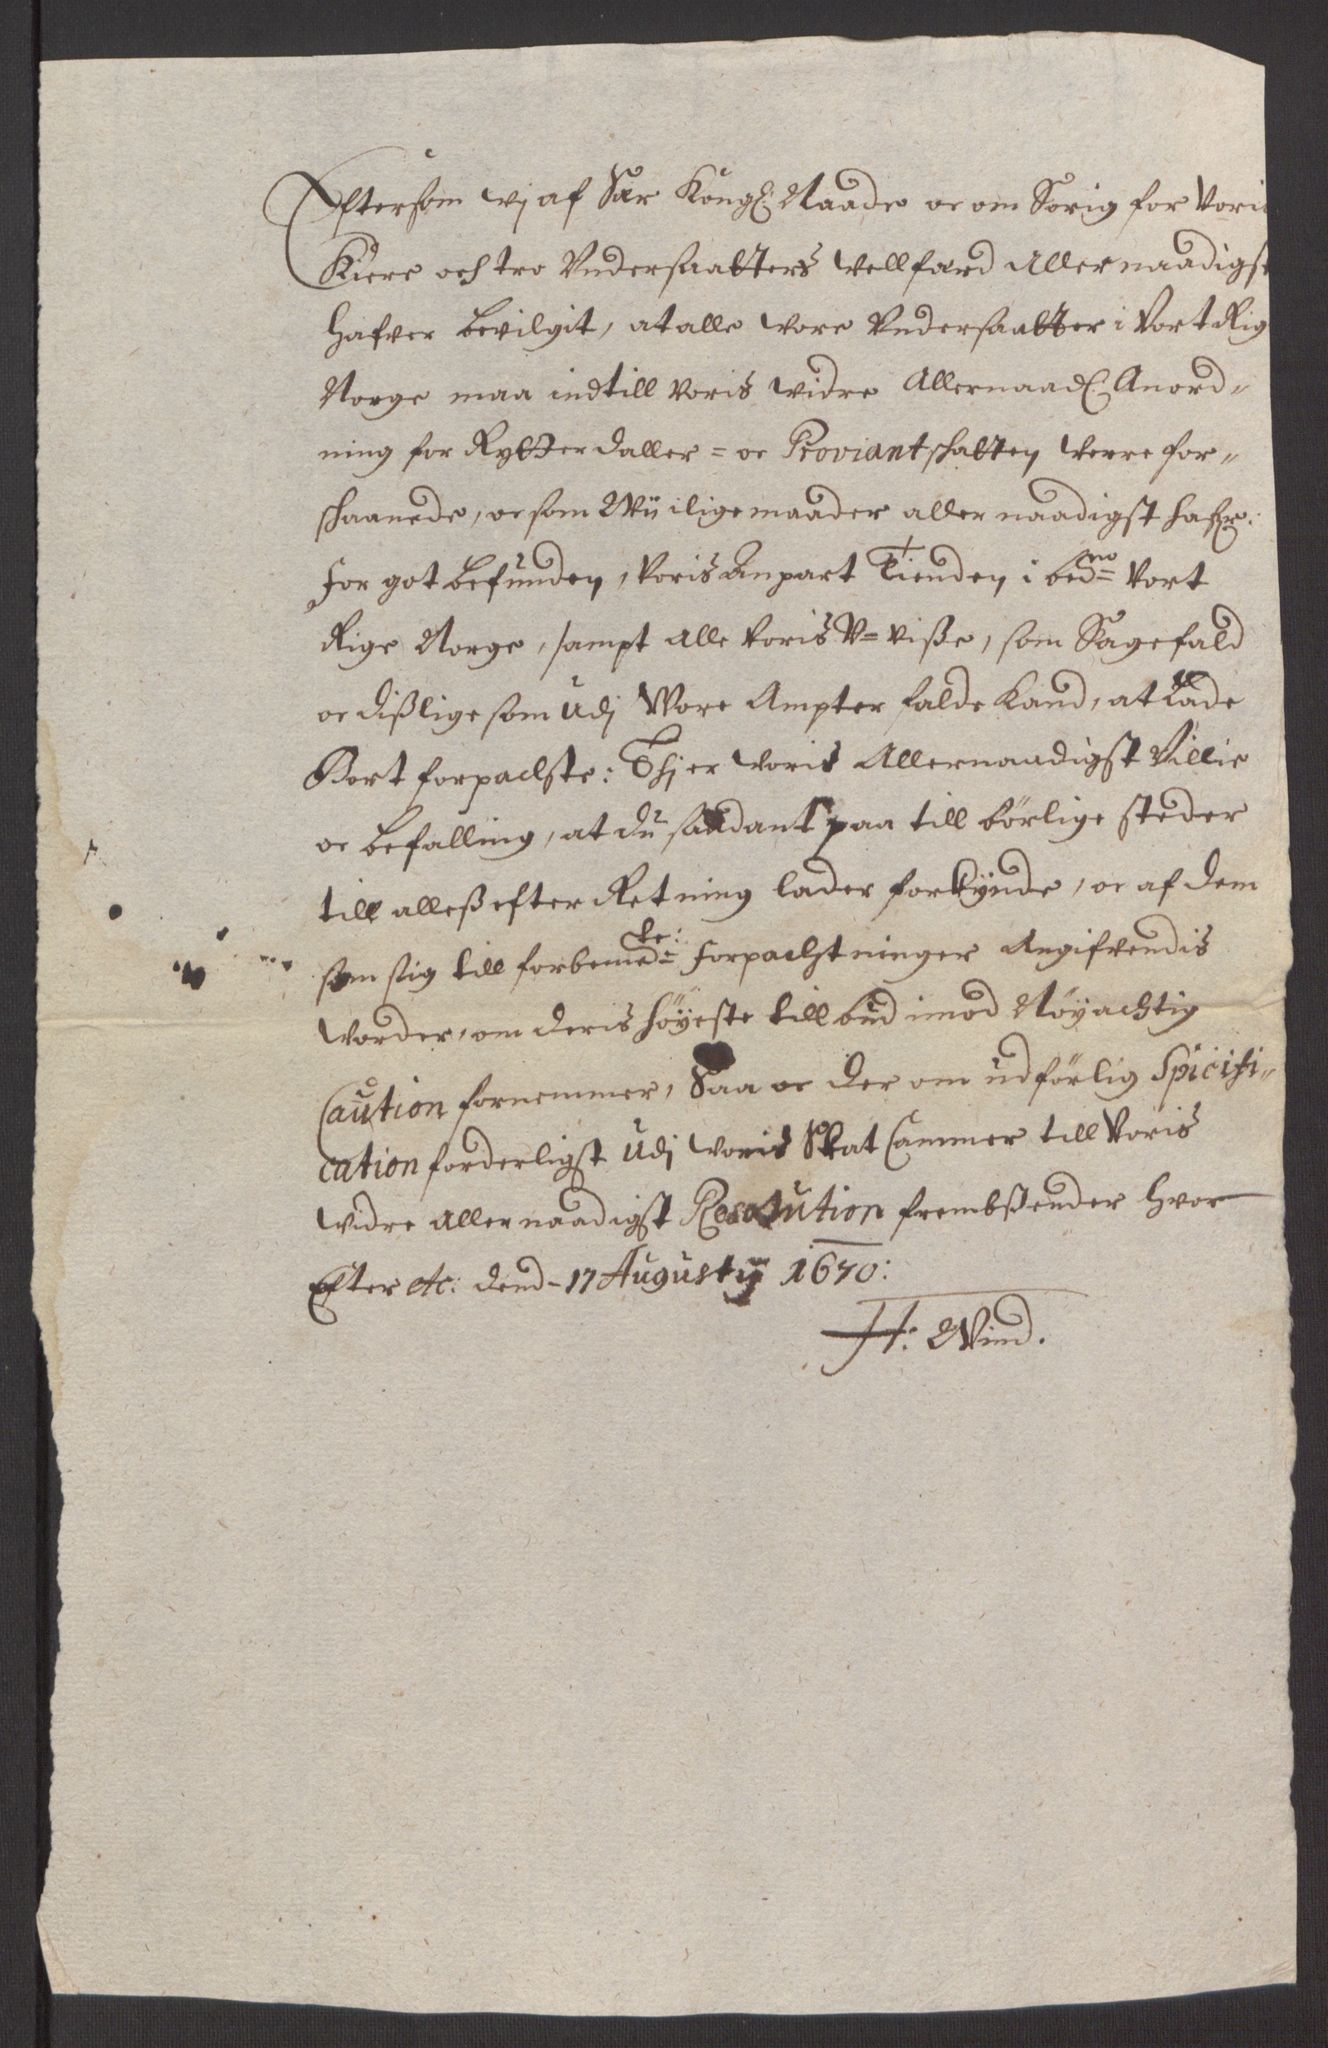 Eftersom vj af Sær Kongl: Naade oc om Sorig for Voris
Kiere och tro Undersaatters Vellfærd Allernaadigst
hafver bevilgit, at alle vore Undersaatter i Vort Rige
Norge maa indtill voris widre Allernaadl: Anord-
ning for Rytterdaller= oc Proviantschatten verre for-
schaanede, oc som Wij i lige maader aller naadigst hafr:
for got befunden, voris Anpart Tienden i bedne= Vort
Rige Norge, sampt alle voris V=visse, som Sagefald
oc disslige som Udj Vore Ampter falde kand, at lade
Bort forpachste: Thj er voris Allernaadigst Villie
oc befalling, at du saadant paa till börlige steder
till alless efter Retning lader forkÿnde, oc af dem
som sig till forbemedte= Forpachtninger Angifvendis
vorder, om deris höÿeste till bud imod Nöÿachtig
Caution fornemmer, Saa oc der om udförlig Spicifi-
cation forderligst Udj voris Skat Cammer till Voris
widre allernaadigst Resolution frembssender hvor
Efter etc: dend- 17 Augustij 1670:
H: Wind.